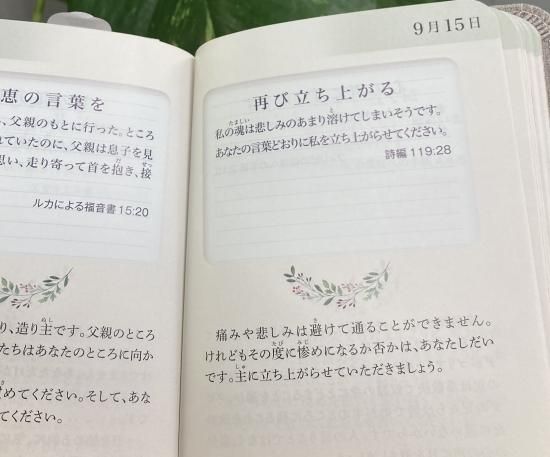 恵の言葉を
、父親のもとに行った。ところ
れていたのに、父親は息子を見
思い、走り寄って首を抱き、接
ルカによる福音書15:20
り、造り主です。父親のところ
たちはあなたのところに向か
めてください。そして、あな
てください。
9月15日
再び立ち上がる
私の魂は悲しみのあまり溶けてしまいそうです。
あなたの言葉どおりに私を立ち上がらせてください。
詩編 119:28
痛みや悲しみは避けて通ることができません。
けれどもその度に惨めになるか否かは、あなたしだい
です。主に立ち上がらせていただきましょう。